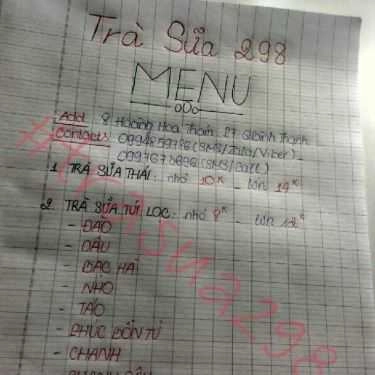 Trà Sữa 298
MENU
Add: 8 Hoàng Hoa Thám, P7, Q Bình Thạnh
Contact:
(SMS/Zalo/Viber)
(SMS/Call)
1. TRÀ SỮA THÁI: nhỏ 10K - lớn 14K
2. TRÀ SỮA TÚI LỌC: nhỏ 8K lớn 12K
- ĐÀO
- DÂU
- BẠC HÀ
- NHO
- TÁO
- PHÚC BỒN TỬ
- CHANH
#trasua298